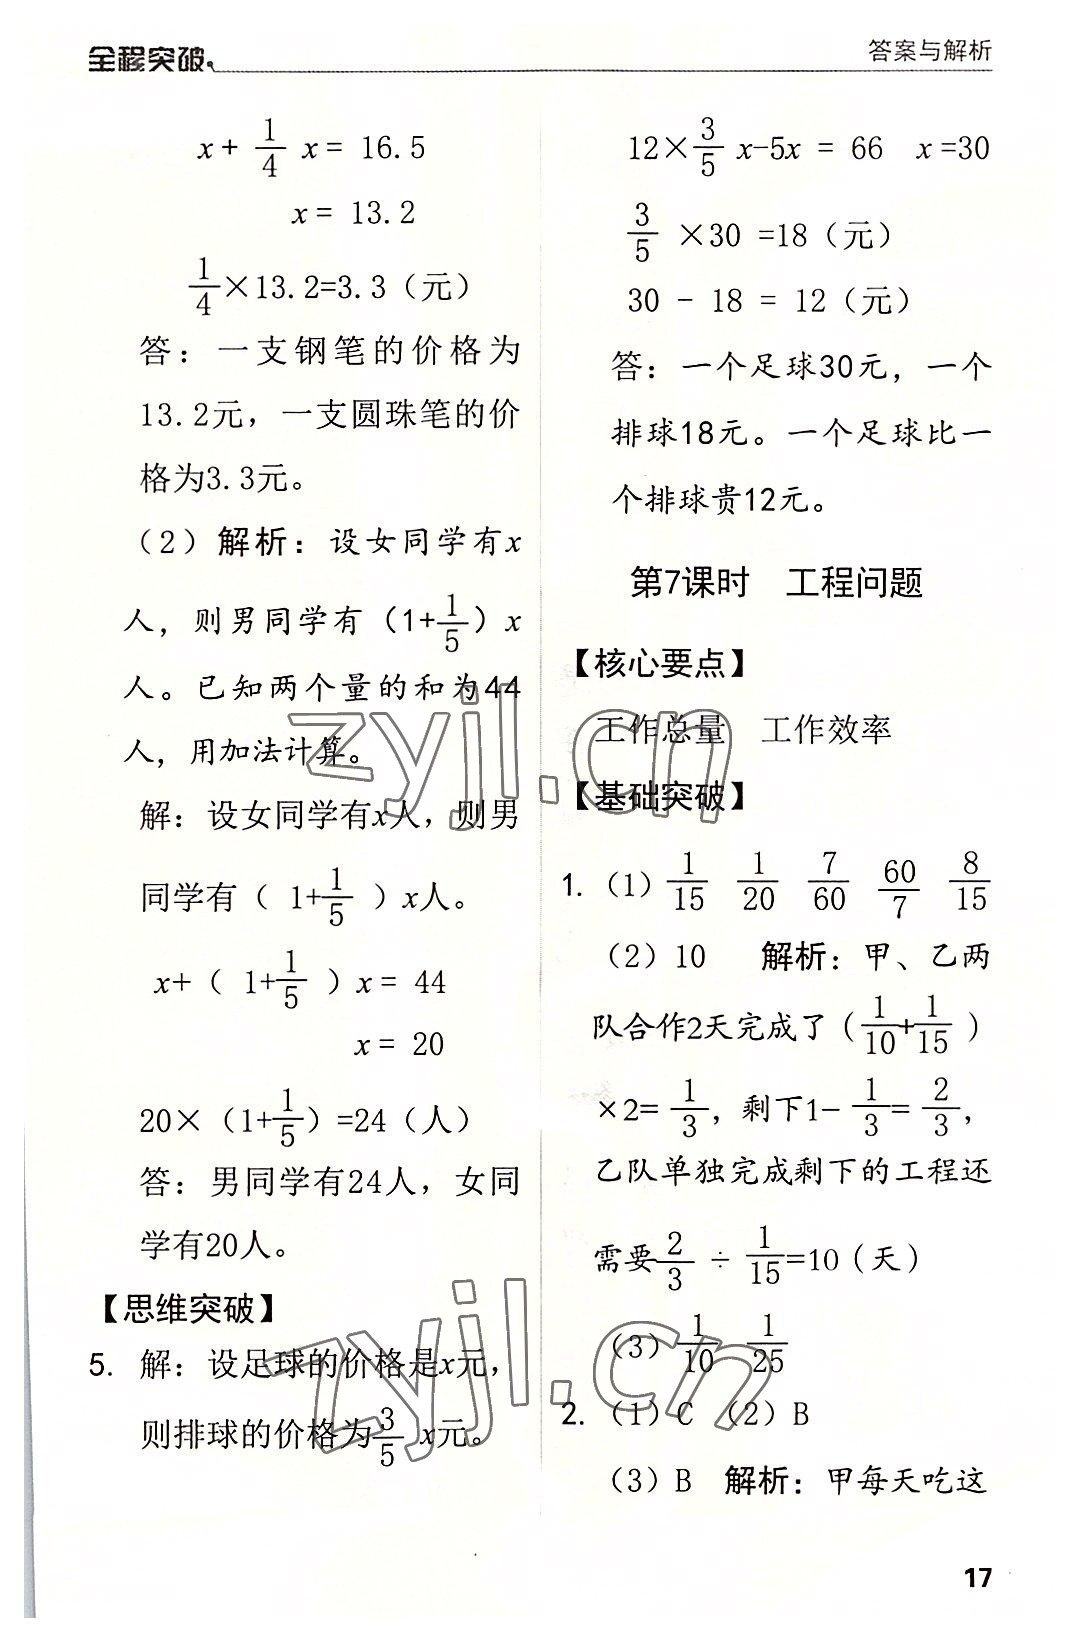 全程突破
答案与解析
x+ 1/4 x= 16.5
x= 13.2
1/4×13.2=3.3（元）
答：一支钢笔的价格为
13.2元，一支圆珠笔的价
格为3.3元。
（2）解析：设女同学有x
人，则男同学有（1+1/5）x
人。已知两个量的和为44
人，用加法计算。
解：设女同学有x人，则男
同学有（ 1+1/5 ）x人。
x+（ 1+1/5 ）x= 44
x= 20
20×（1+1/5）=24（人）
答：男同学有24人，女同
学有20人。
【思维突破】
5. 解：设足球的价格是x元，
则排球的价格为3/5 x元。
12×3/5 x-5x = 66 x=30
3/5 ×30 =18（元）
30 - 18 = 12（元）
答：一个足球30元，一个
排球18元。一个足球比一
个排球贵12元。
第7课时 工程问题
【核心要点】
工作总量 工作效率
【基础突破】
1.（1）1/15 1/20 7/60 60/7 8/15
（2）10 解析：甲、乙两
队合作2天完成了（1/10+1/15）
×2= 1/3，剩下1- 1/3= 2/3，
乙队单独完成剩下的工程还
需要2/3 ÷ 1/15=10（天）
（3）1/10 1/25
2.（1）C （2）B
（3）B 解析：甲每天吃这
17
zyjl.cn
zyjl.cn